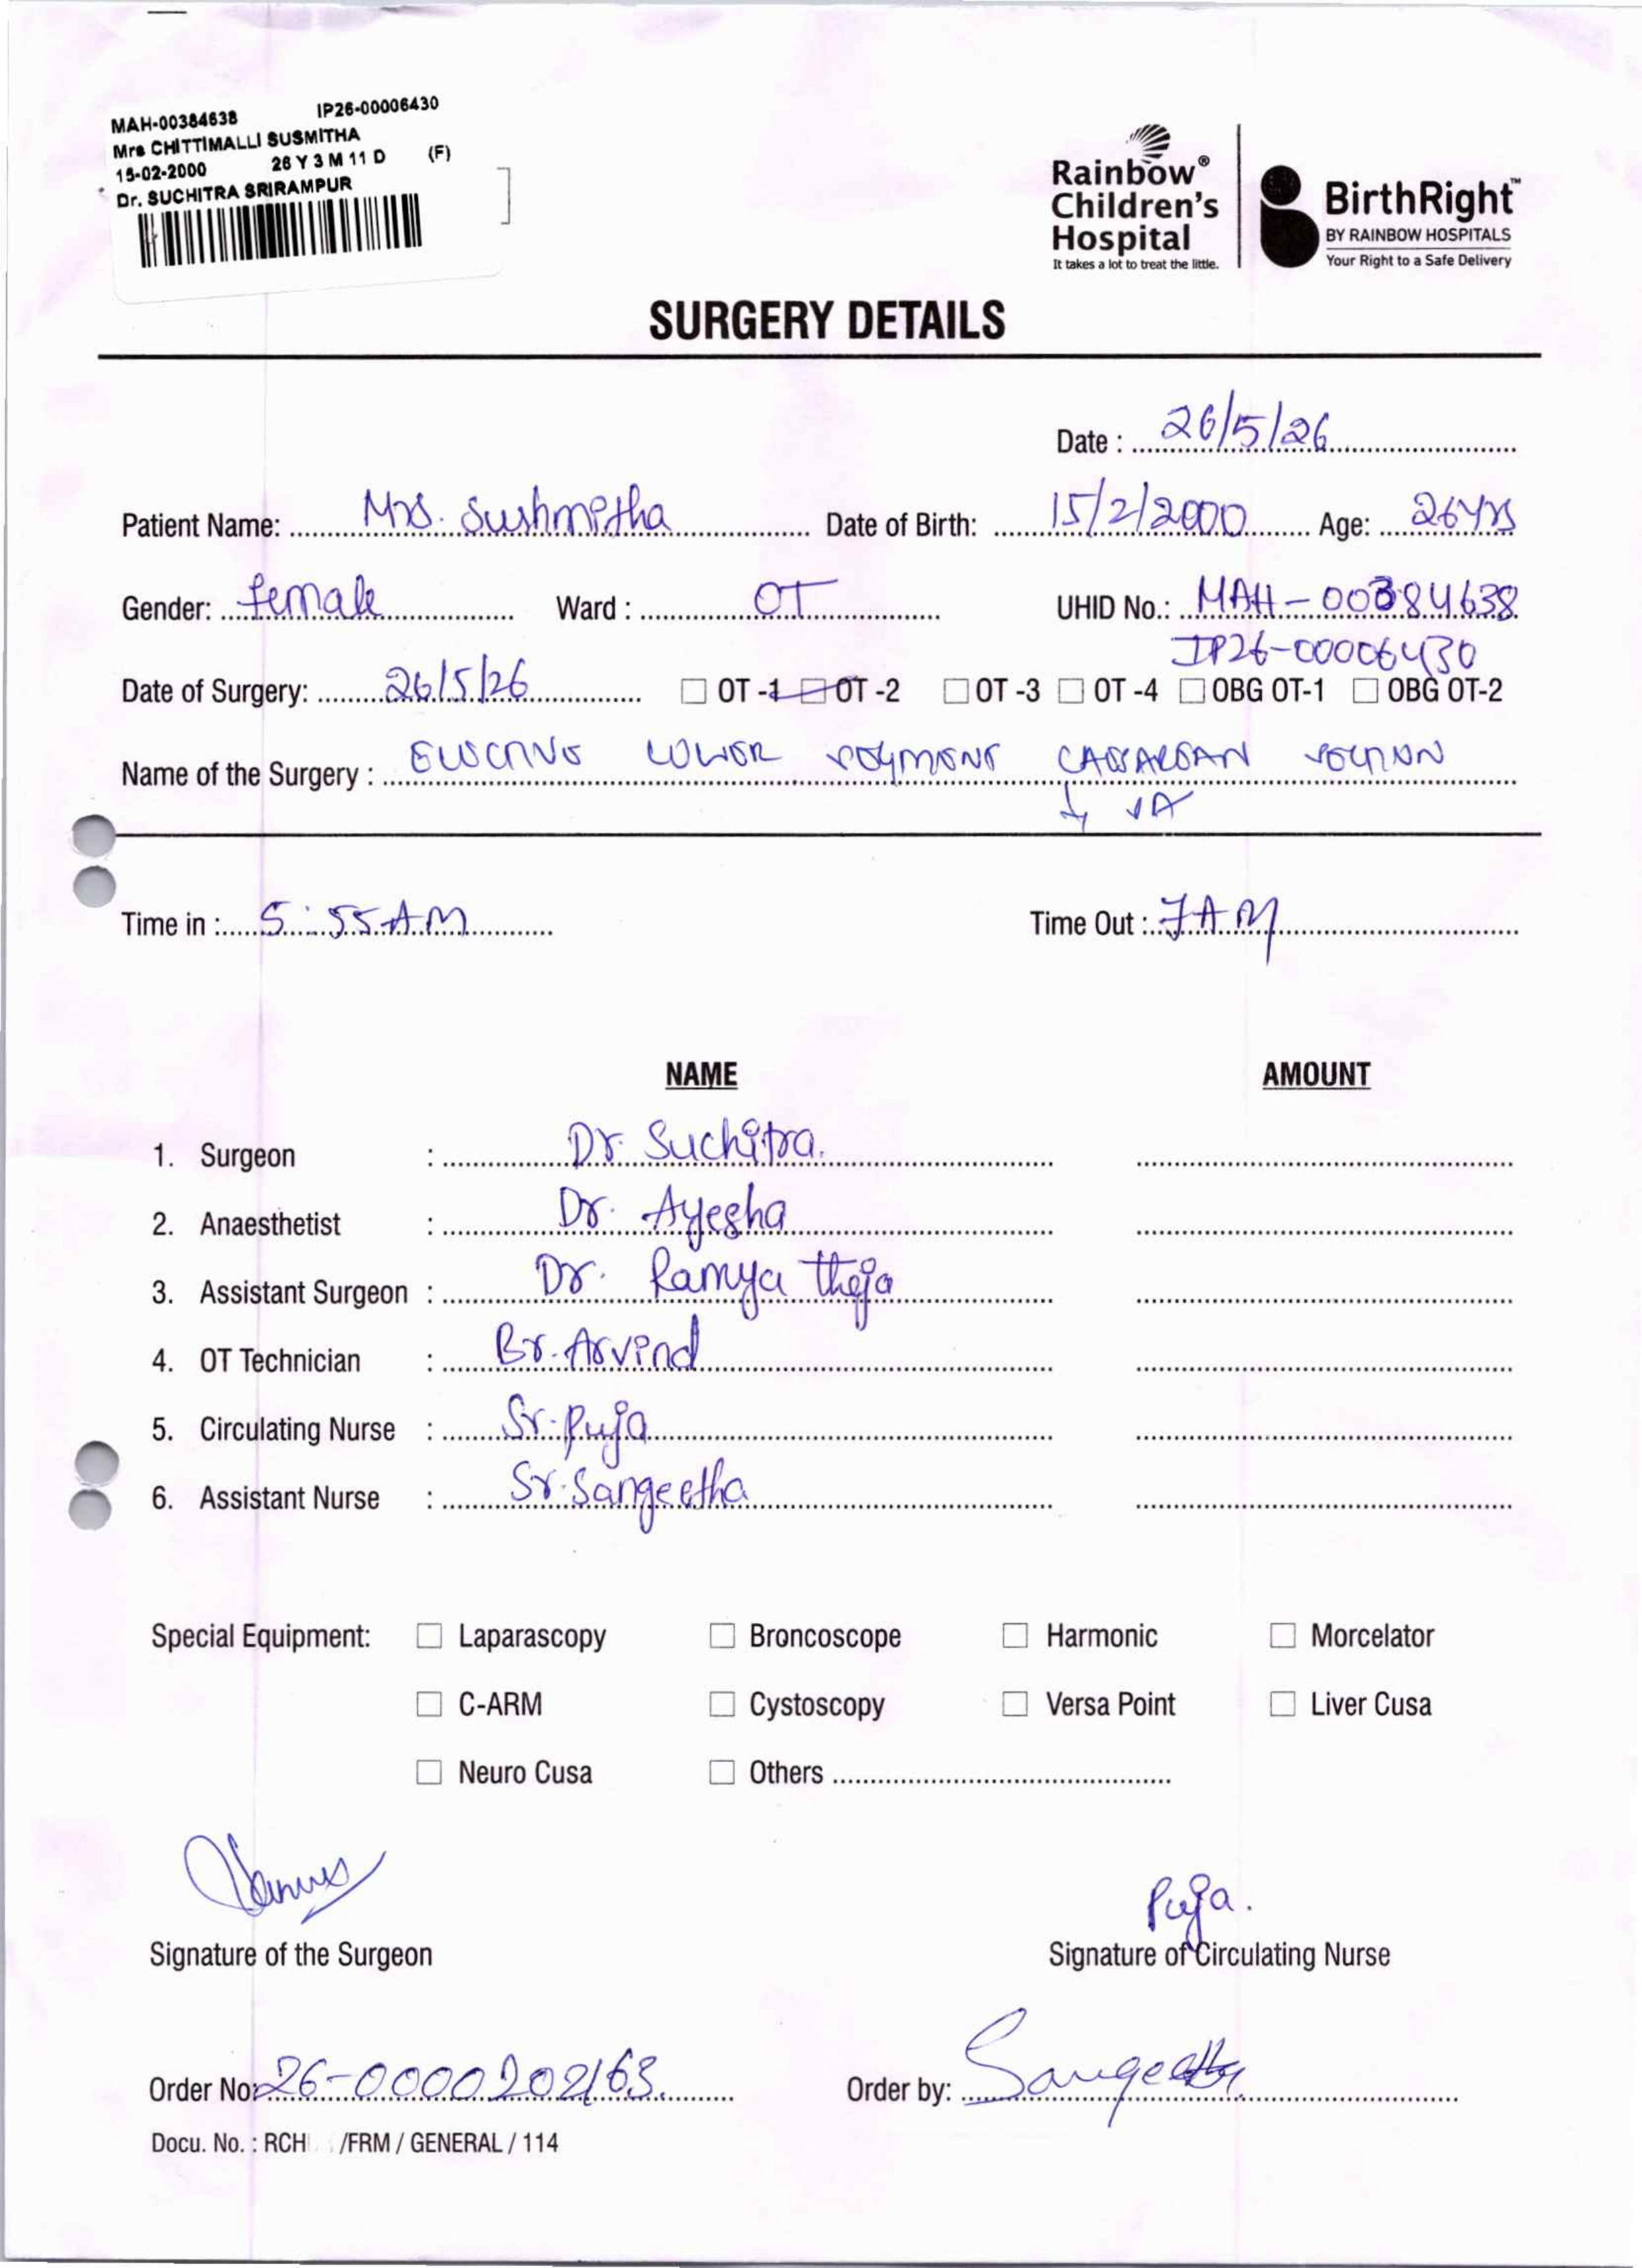 MAH-00384638 IP26-00006430
Mrs CHITTIMALLI SUSMITHA
15-02-2000 26 Y 3 M 11 D (F)
Dr. SUCHITRA SRIRAMPUR
Rainbow® Children's Hospital
It takes a lot to treat the little.
BirthRight™
BY RAINBOW HOSPITALS
Your Right to a Safe Delivery
SURGERY DETAILS
Date : 26/5/26
Patient Name: Mrs. Sushmitha Date of Birth: 15/2/2000 Age: 26yrs
Gender: female Ward : OT UHID No.: MAH-00384638
IP26-00006430
Date of Surgery: 26/5/26 OT -1 OT -2 OT -3 OT -4 OBG OT-1 OBG OT-2
Name of the Surgery : LOWER
Time in : 5:55 AM Time Out : 7AM
NAME AMOUNT
1. Surgeon : Dr. Suchitra.
2. Anaesthetist : Dr. Ayesha
3. Assistant Surgeon : Dr. Ramya theja
4. OT Technician : Br. Arvind
5. Circulating Nurse : Sr. Puja
6. Assistant Nurse : Sr. Sangeetha
Special Equipment: Laparascopy Broncoscope Harmonic Morcelator
C-ARM Cystoscopy Versa Point Liver Cusa
Neuro Cusa Others
Puja.
Signature of the Surgeon Signature of Circulating Nurse
Order No: 26-0000202163. Order by: Sangeetha
Docu. No. : RCH /FRM / GENERAL / 114